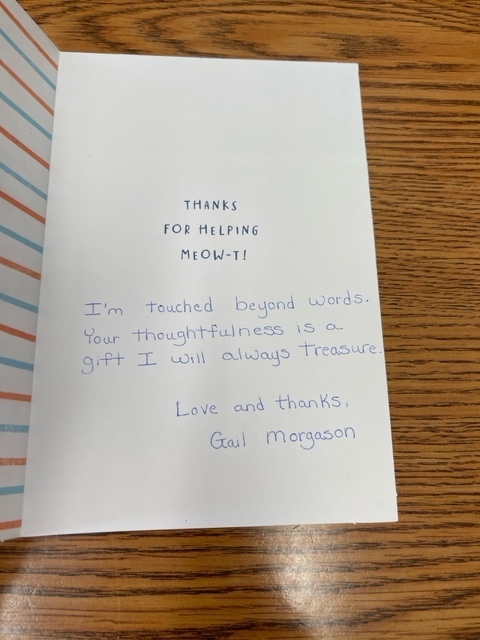 THANKS
FOR HELPING
MEOW-T!
I'm touched beyond words.
Your thoughtfulness is a
gift I will always treasure.
Love and thanks,
Gail Morgason